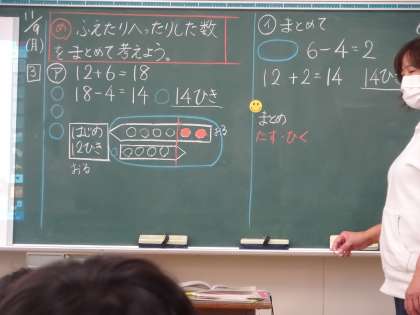 11/9
(月)
め ふえたりへったりした数
をまとめて考えよう。
3 ア 12+6=18
18-4=14 14ひき
はじめ
12ひき
おる
おる
イ まとめて
6-4=2
12+2=14 14ひき
まとめ
たす・ひく